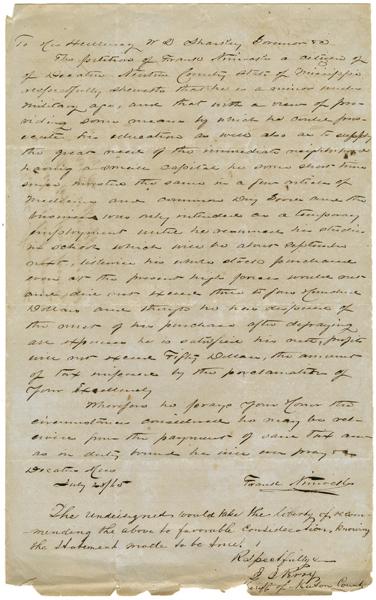 To His Excellency W L Sharkey Governor &c
The petition of Frank Nimocks a citizen of
of Decatur Newton County State of Mississippi
respectfully sheweth that he is a minor under
military age, and that with a view of pro-
viding some means by which he could pros-
ecute his education as well also as to supply
the great need of the immediate neighborhood
having a small capital he some short time
since invested the same in a few articles of
Medicines and common Dry Goods and the
business was only intended as a temporary
employment until he resumed his studies
in school which will be about September
next, his whole stock purchased
even at the present high prices would not
and did not exceed three to four Hundred
Dollars and though he has disposed of
the most of his purchase after defraying
all expenses he is satisfied his nett profits
will not exceed Fifty Dollars, the amount
of tax imposed by the proclamation of
Your Excellency
Wherefore he prays Your Honor the
circumstances considered he may be rel-
eived from the payment of said tax and
as in duty bound he will ever pray &c
Decatur Miss
July 28/65 Frank Nimocks
The Undersigned would take the liberty of recom-
mending the above to favorable consideration, knowing
the statement made to be true.
Respectfully
of Newton County